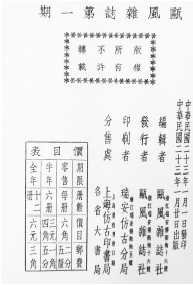 甌風雜誌第一期
版權所有
不許轉載
中華民國二十三年一月一日付印
中華民國二十三年一月廿日出版
編輯者 甌風雜誌社
發行者 甌風雜誌社
印刷者 瑞安仿古分局
分售處 上海仿古印書局
各省大書局
價目表
期限 冊數 價目 郵費
零售 每冊 六角 二分半
半年 六冊 三元四角 一角五分
全年 十二冊 六元 三角